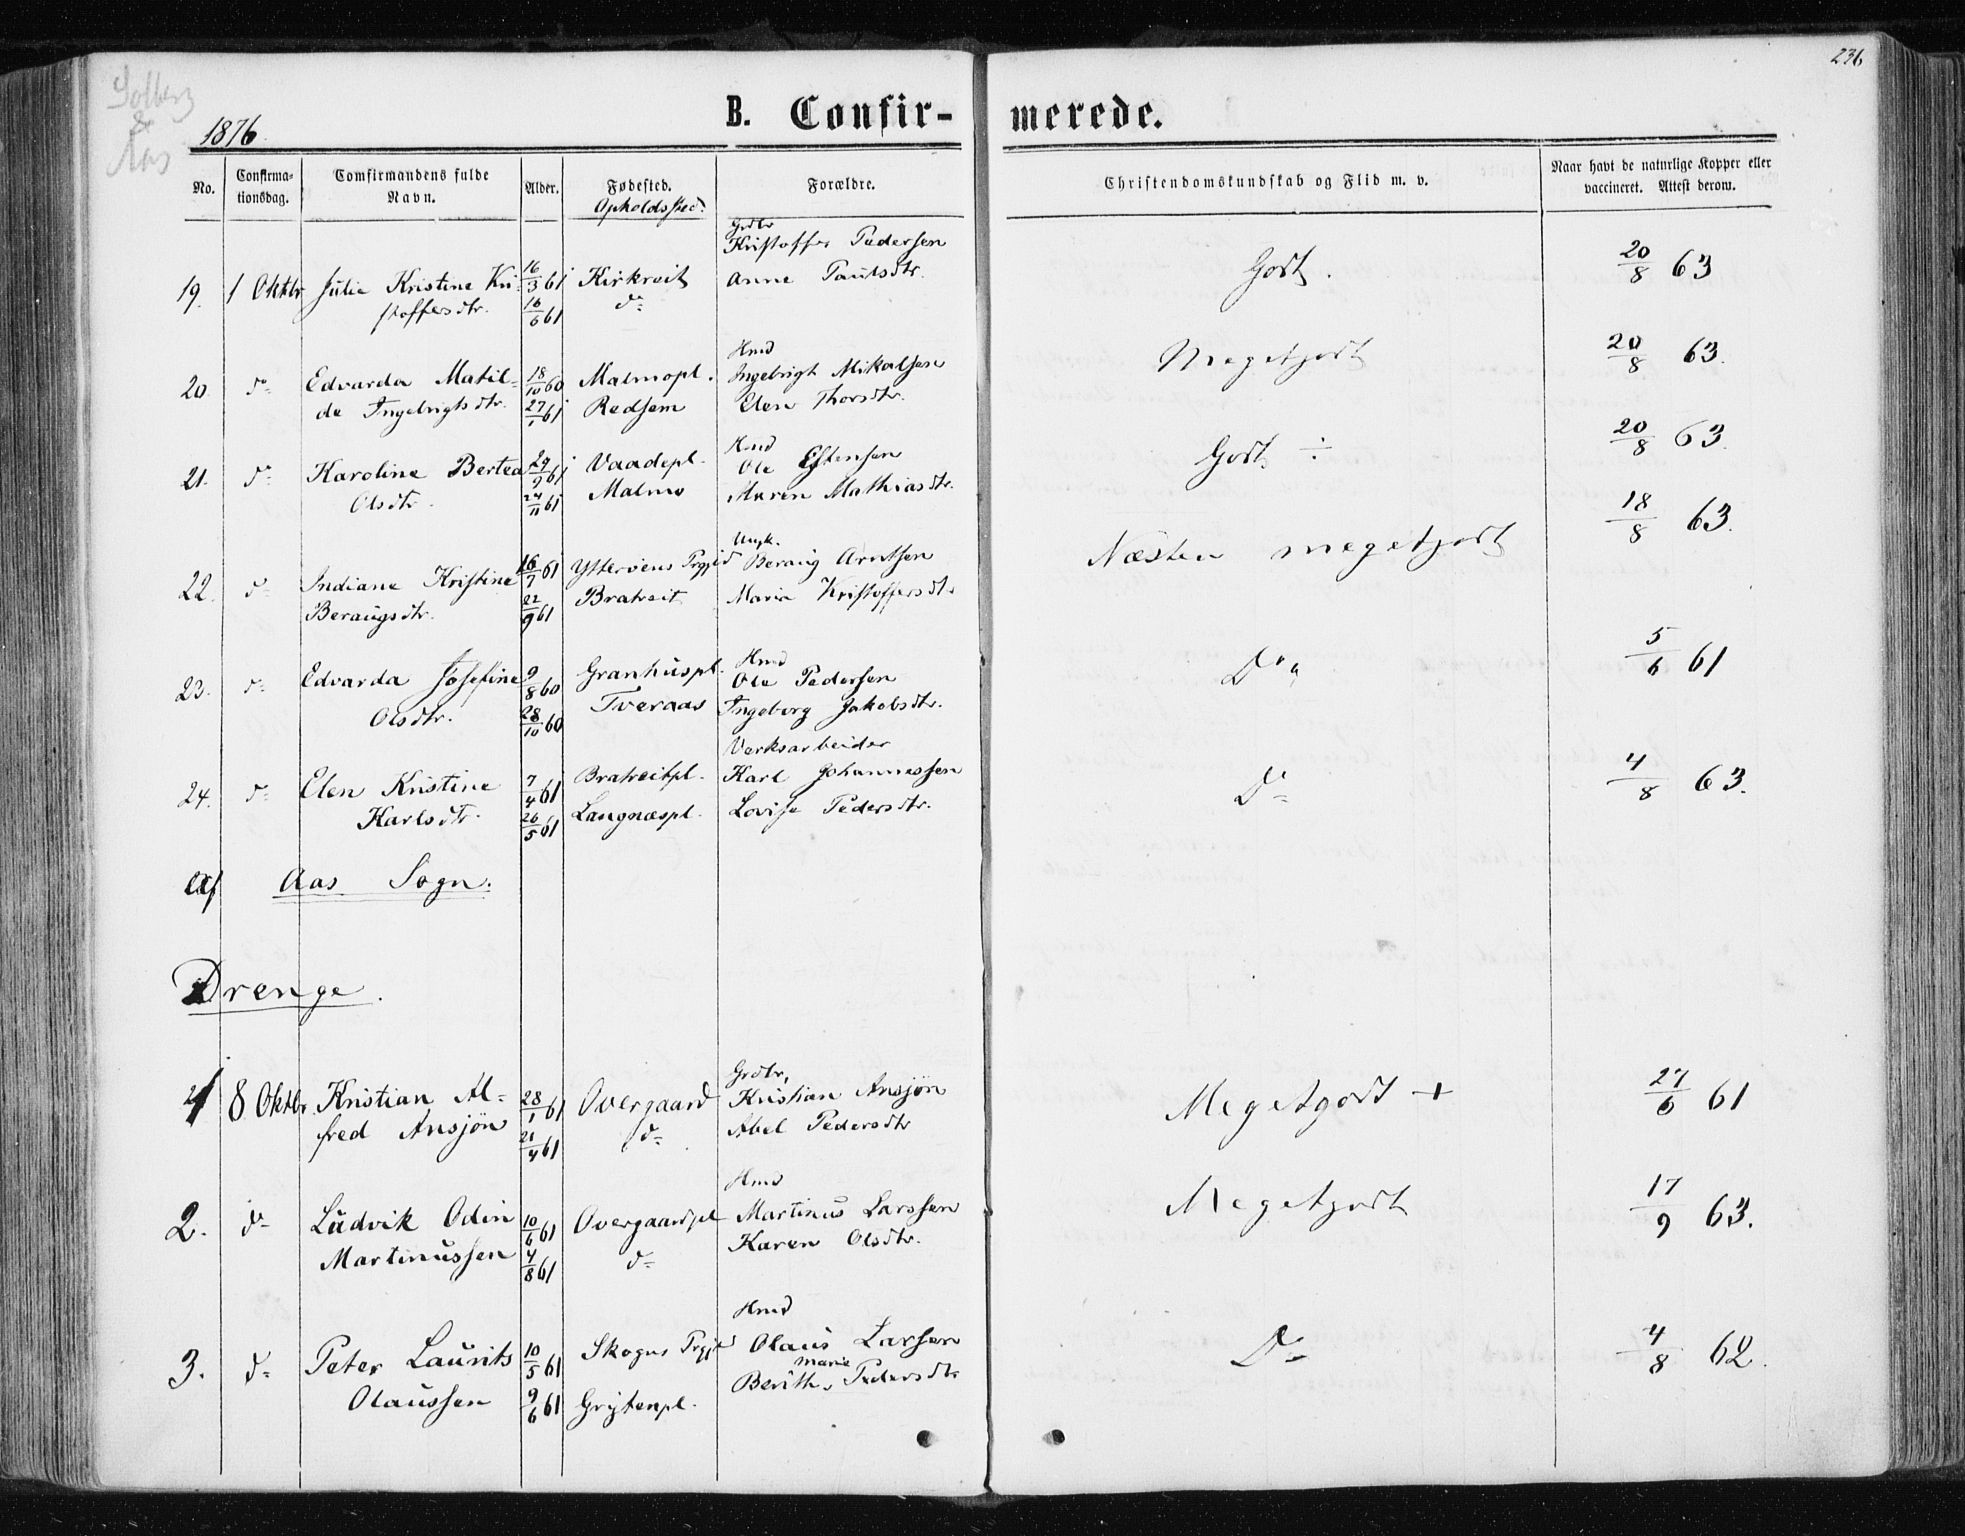 236
Solberg
&
Aas
1876.
B. Confirmerede.
No.
Confirmationsdag.
Comfirmandens fulde Navn.
Alder.
Fødested.
Opholdssted.
Forældre.
Christendomskundskab og Flid m. v.
Naar havt de naturlige Kopper eller vaccineret. Attest derom.
Grdbr
19. 1 Oktbr Julie Kristine Kri- 16/3 61 Kirkreit Kristoffer Pedersen Godt. 20/8 63
stoffersdtr. 16/6 61 do Anne Paulsdtr.
Hmd
20 do Edvarda Matil- 18/10 60 Malmopl. Ingebrigt Mikalsen Megetgodt 20/8 63.
de Ingebrigtsdtr. 27/1 61 Redsem Elen Thorsdtr.
Hmd
21. do Karoline Bertea 29/9 61 Vaadepl. Ole Estensen Godt ÷ 20/8 63.
Olsdtr. 24/11 61 Malmo Maren Mathiasdtr.
Ungk.
22. do Indiane Kristine 16/7 61 Ytterøens Prgjd Beraug Arntsen Næsten megetgodt 18/8 63.
Beraugsdtr. 22/9 61 Bratreit Maria Kristoffersdtr
Hmd
23. do Edvarda Josefine 9/8 60 Granhuspl. Ole Pedersen Do 5/6 61
Olsdtr. 28/10 60 Tveraas Ingeborg Jakobsdtr.
Verksarbeider
24. do Elen Kristine 7/4 61 Bratreitpl. Karl Johannessen Do 4/8 63.
Karlsdtr. 26/5 61 Langnæspl. Lovise Pedersdtr.
af Aas Sogn.
Drenge.
Grdbr,
1 8 Oktbr Kristian Al- 28/1 61 Overgaard Kristian Ansjön Megetgodt + 27/6 61
fred Ansjön 21/4 61 do Abel Pedersdtr
Hmd
2. do Ludvik Odin 10/6 61 Overgaardpl Martinus Larssen Megetgodt 17/9 63.
Martinussen 4/8 61 do Karen Olsdtr.
Hmd
3. do Peter Laurits 10/5 61 Skogns Prgjd Olaus Larsen Do 4/8 62.
Marie
Olaussen 9/6 61 Grytenpl. Berith Pedersdtr